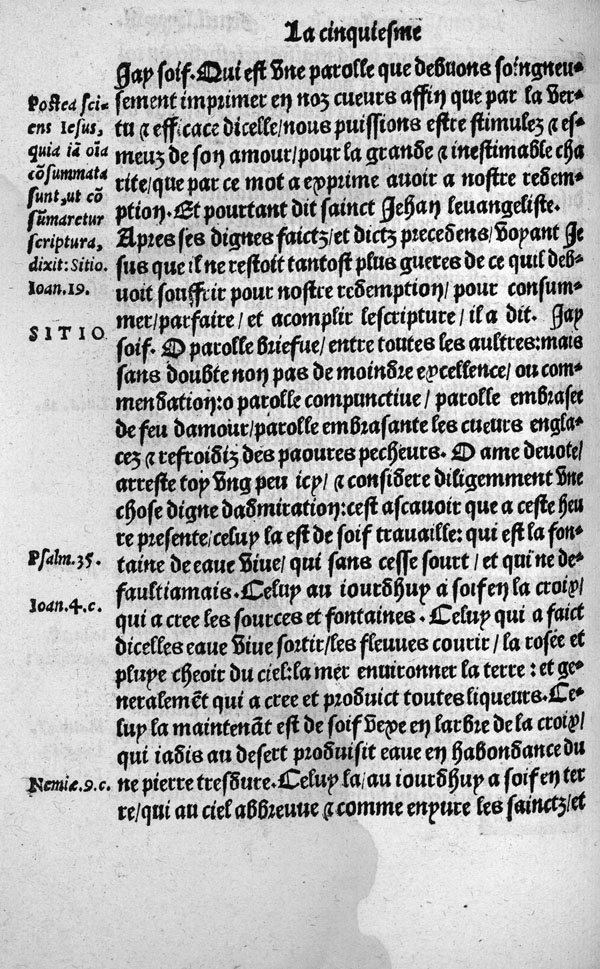 La cinquiesme
Jay soif. Qui est vne parolle que debuons soingneu-
sement imprimer en noz cueurs affin que par la ver-
tu & efficace dicelle/nous puissions estre stimulez & es-
meuz de son amour/pour la grande & inestimable cha
rite/que par ce mot a exprime auoir a nostre redem-
ption. Et pourtant dit sainct Jehan leuangeliste.
Apres ses dignes faictz/et dictz precedens/voyant Je
sus que il ne restoit tantost plus gueres de ce quil deb-
uoit souffrir pour nostre redemption/ pour consum-
mer/parfaire/ et acomplir lescripture/ il a dit. Jay
soif. O parolle briefue/ entre toutes les aultres:mais
sans doubte non pas de moindre excellence/ ou com-
mendation:o parolle compunctiue/ parolle embrasee
de feu damour/parolle embrasante les cueurs engla-
cez & refroidiz des paoures pecheurs. O ame deuote/
arreste toy vng peu icy/ & considere diligemment vne
chose digne dadmiration:cest ascauoir que a ceste heu
re presente/celuy la est de soif trauaille: qui est la fon-
taine de eaue viue/ qui sans cesse sourt/ et qui ne de-
faultiamais. Celuy au iourdhuy a soif en la croix/
qui a cree les sources et fontaines. Celuy qui a faict
dicelles eaue viue sortir/les fleuues courir/ la rosee et
pluye cheoir du ciel:la mer enuironner la terre: et ge-
neralemẽt qui a cree et produict toutes liqueurs. Ce-
luy la maintenãt est de soif vexe en larbre de la croix/
qui iadis au desert produisit eaue en habondance du
ne pierre tresdure. Celuy la/au iourdhuy a soif en ter
re/qui au ciel abbreuue & comme enyure les sainctz/et
Postea sci-
ens Iesus,
quia iã oĩa
cõsummata
sunt, ut cõ
sũmaretur
scriptura,
dixit: Sitio.
Ioan. 19.
SITIO
Psalm. 35.
Ioan. 4. c.
Nemiæ. 9. c.